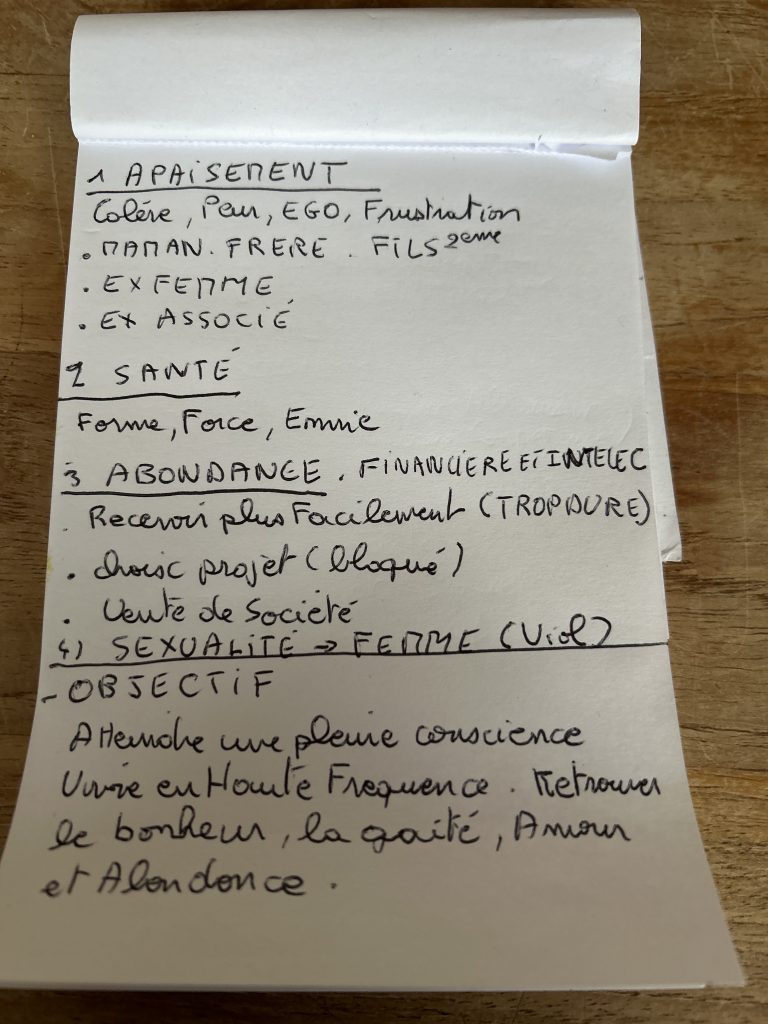 1 APAISEMENT
Colére, Peur, EGO, Frustration
. MAMAN. FRERE. FILS 2eme
. EX FEMME
. EX ASSOCIÉ
2 SANTÉ
Forme, Force, Envie
3 ABONDANCE. FINANCIERE ET INTELEC
. Recevoir plus Facilement (TROP DURE)
. choix projet (bloqué)
. Vente de Société
4) SEXUALITÉ → FEMME (Viol)
- OBJECTIF
Atteindre une pleine conscience
Vivre en Haute Frequence. Retrouver
le bonheur, la gaité, Amour
et Abondance.